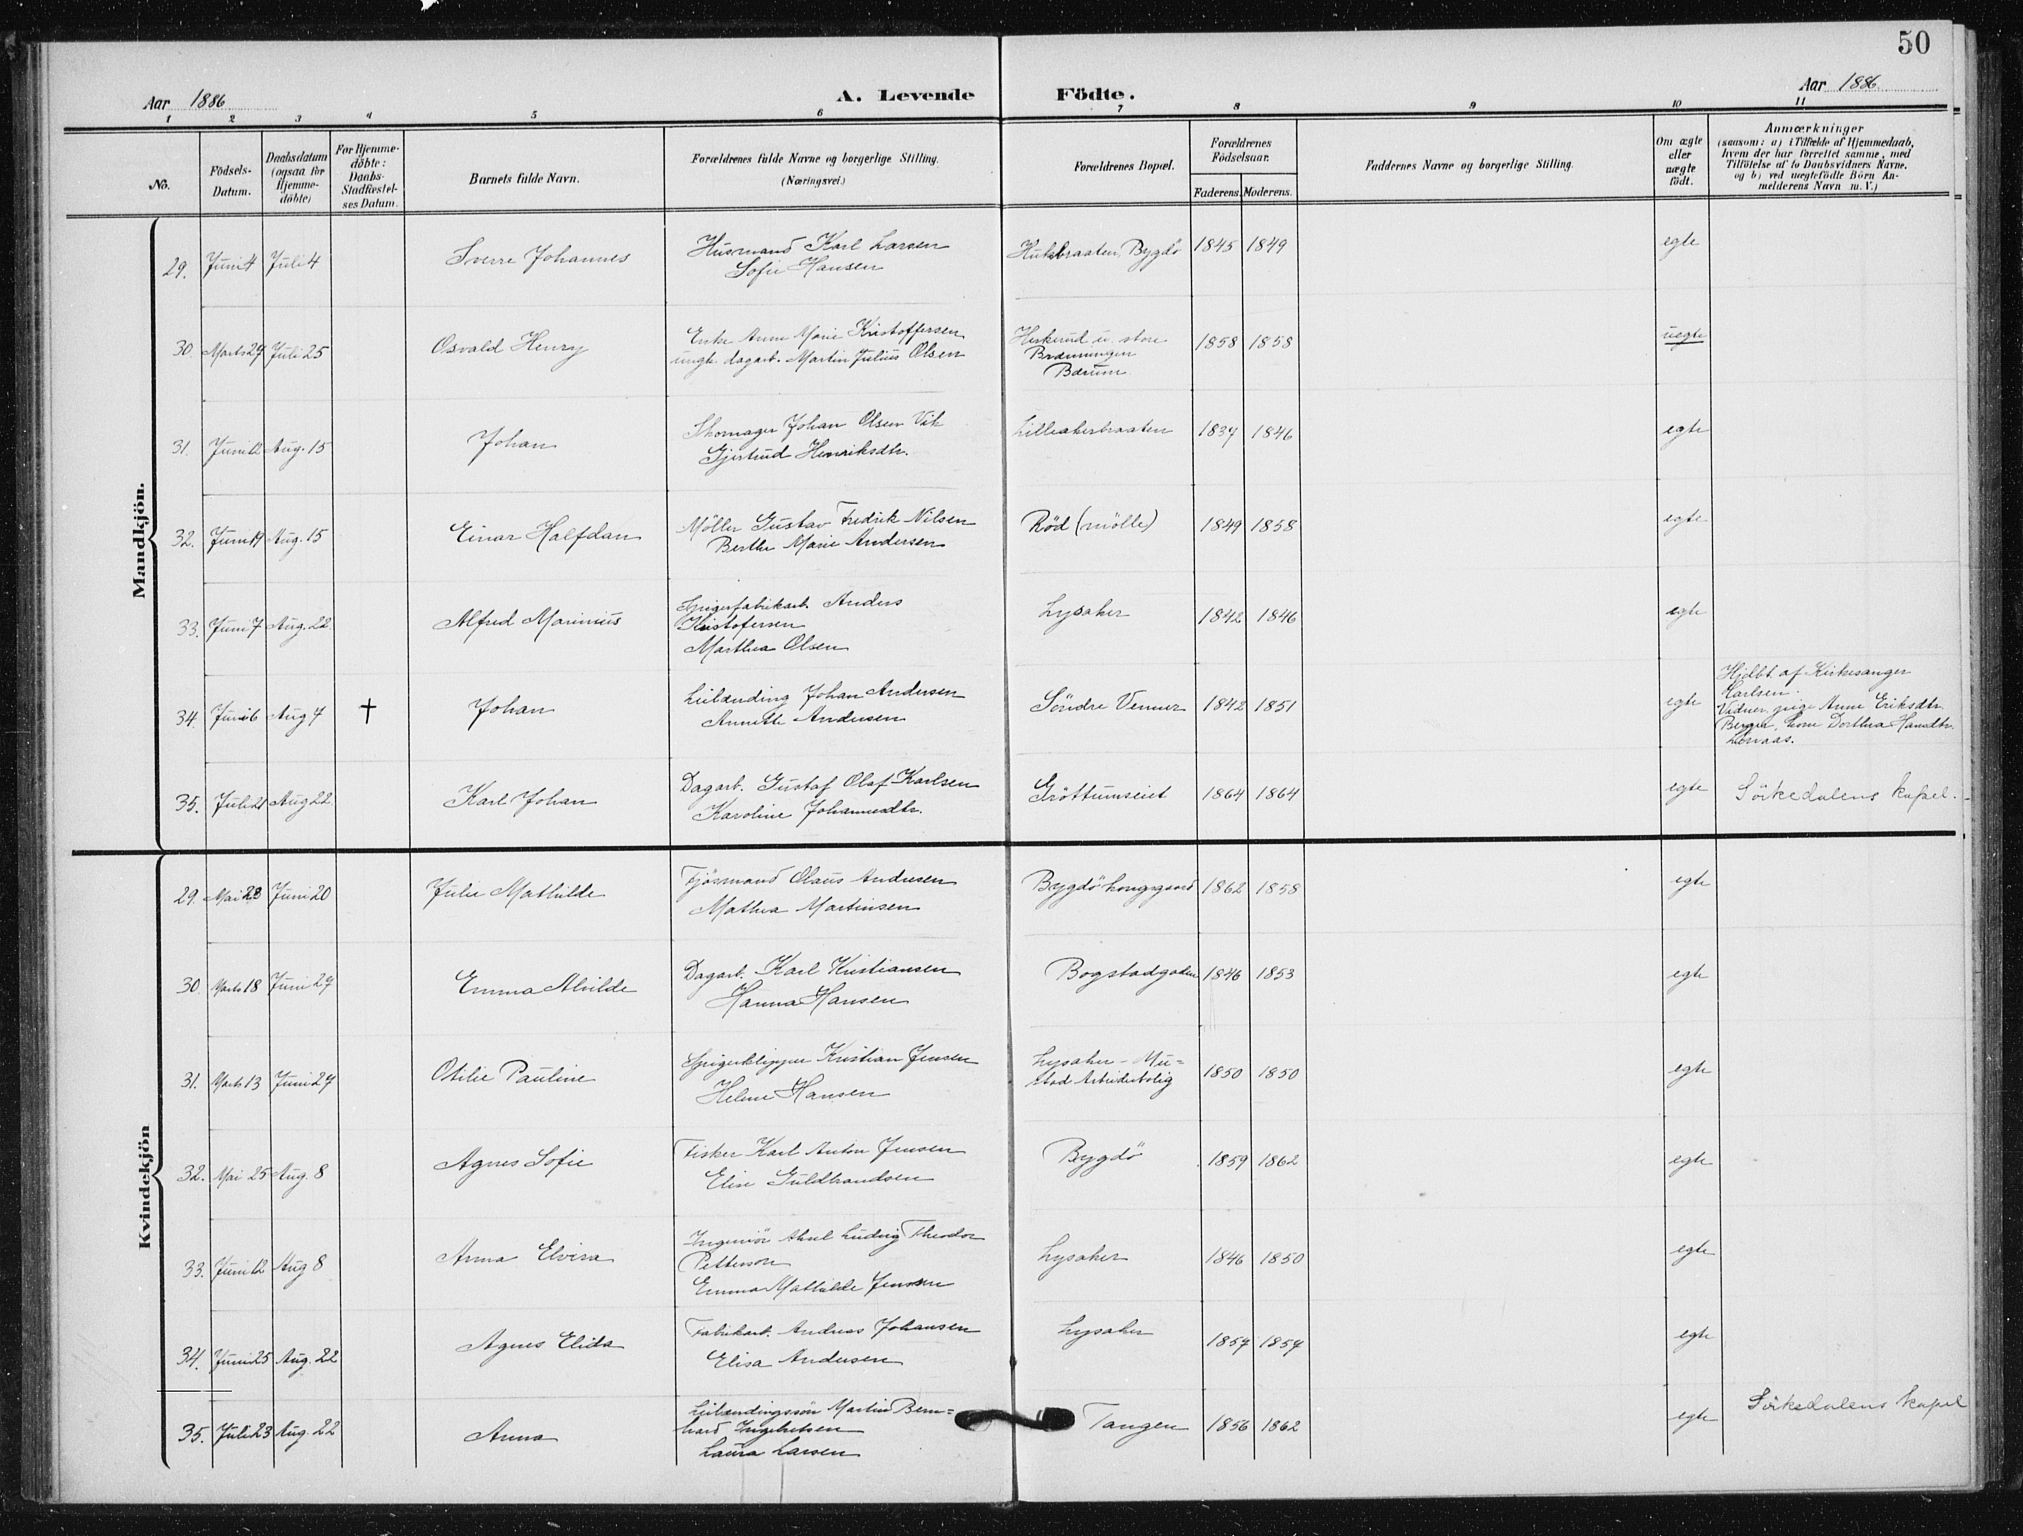 50
Aar 1886
A. Levende Födte.
Aar 1886
1 2 3 4 5 6 7 8 9 10 11
No.
Födsels-Datum.
Daabsdatum (ogsaa for Hjemme-döbte)
For Hjemme-döbte: Daabs-Stadfæstel-ses Datum.
Barnets fulde Navn.
Forældrenes fulde Navne og borgerlige Stilling.
(Næringsvei.)
Forældrenes Bopæl.
Forældrenes Födselsaar.
Faderens. Moderens.
Faddernes Navne og borgerlige Stilling.
Om ægte eller uægte födt.
Anmærkninger
(saasom: a) i Tilfælde af Hjemmedaab,
hvem der har forrettet samme, med
Tilföielse af to Daabsvidners Navne,
og b) ved uægtefödte Börn An-
melderens Navn m. V.)
Mandkjön.
29. Juni 4 Juli 4 Sverre Johannes Husmand Karl Larsen Hukbraaten, Bygdö 1845 1849 egte
Sofie Hansen
30. Marts 27 Juli 25 Osvald Henry Enke Anne Marie Kristoffersen Herkerud u. store 1858 1858 uegte
ungk. dagarb. Martin Julius Olsen Brænningen
Bærum
31. Juni 12 Aug. 15 Johan Skomager Johan Olsen Vik Lilleakerbraaten 1837 1846 egte
Gjertrud Henriksdtr.
32. Juni 19 Aug. 15 Einar Halfdan Möller Gustav Fredrik Nilsen Röd (mölle) 1849 1858 egte
Berthe Marie Andersen
33. Juni 7 Aug. 22 Alfred Marinius Spigerfabrikarb. Anders Lysaker 1842 1846 egte
Kristofersen
Marthea Olsen
34. Juni 6 Aug 7 † Johan Leilænding Johan Andersen Söndre Venner 1842 1851 egte
Annette Andersen
Hjdbt. af Kirkesanger
Karlsen.
Vidner, pige Anne Eriksdtr.
Berger, kone Dorthea Hansdtr.
35. Juli 21 Aug 22 Karl Johan Dagarb. Gustaf Olaf Karlsen Gröttumseiet 1864 1864 egte Sörkedalens kapel.
Karoline Johannesdtr.
Kvindekjön
29. Mai 23 Juni 20 Julie Mathilde Fjösmand Olaus Andresen Bygdö kongsgaard 1862 1858 egte
Mathea Martinsen
30. Marts 18 Juni 27 Emma Alvilde Dagarb. Karl Kristiansen Bogstadgaden 1846 1853 egte
Hanna Hansen
31. Marts 13 Juni 27 Otilie Pauline Spigerklipper Kristian Jensen Lysaker – Mu= 1850 1850 egte
Helene Hansen stad Arbeiderbolig
32. Mai 25 Aug. 8 Agnes Sofie Fisker Karl Anton Jensen Bygdö 1859 1862 egte
Elise Guldbrandsen
33. Juni 12 Aug 8 Anna Elvira Ingeniör Axel Ludvig Theodor Lysaker 1846 1850 egte
Petterson
Emma Mathilde Jensen
34. Juni 25 Aug. 22 Agnes Elida Fabrikarb. Andreas Johansen Lysaker 1857 1857 egte
Elisa Andersen
35. Juli 23 Aug. 22 Anna Leilændingssön Martin Bern= Tangen 1856 1862 egte Sörkedalens kapel
hard Ingebretsen
Laura Larsen